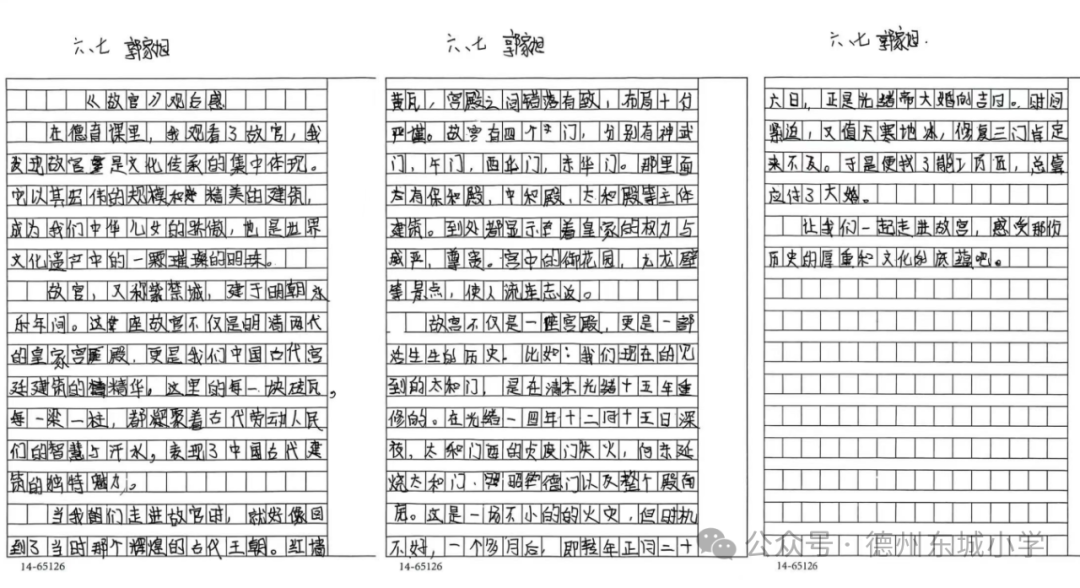 六、七 郭家旭
《故宫》观后感
在德育课里，我观看了故宫，我
发现故宫是文化传承的集中体现。
它以其宏伟的规模和精美的建筑，
成为我们中华儿女的骄傲，也是世界
文化遗产中的一颗璀璨的明珠。
故宫，又称紫禁城，建于明朝永
乐年间。这座故宫不仅是明清两代
的皇家宫殿，更是我们中国古代宫
廷建筑的精华。这里的每一块砖瓦，
每一梁一柱，都凝聚着古代劳动人民
们的智慧与汗水，表现了中国古代建
筑的独特魅力。
当我们走进故宫时，就好像回
到了当时那个辉煌的古代王朝。红墙
14-65126
六、七 郭家旭
黄瓦，宫殿之间错落有致，布局十分
严谨。故宫有四个门，分别有神武
门，午门，西华门，东华门。那里面
太有保和殿，中和殿，太和殿等主体
建筑。到处都显示着皇家的权力与
威严，尊贵。宫中的御花园，九龙壁
等景点，使人流连忘返。
故宫不仅是一座宫殿，更是一部
活生生的历史。比如：我们现在的见
到的太和门，是在清末光绪十五年重
修的。在光绪一四年十二月十五日深
夜，太和门西的贞度门失火，向东延
烧太和门、昭德门以及整个殿南
房。这是一场不小的的火灾，但时机
不好，一个多月后，即转年正月二十
14-65126
六、七 郭家旭.
六日，正是光绪帝大婚的吉日。时间
紧迫，又值天寒地冻，修复三门肯定
来不及。于是便找了能工巧匠，总算
应付了大婚。
让我们一起走进故宫，感受那份
历史的厚重和文化的底蕴吧。
14-65126
公众号·德州东城小学